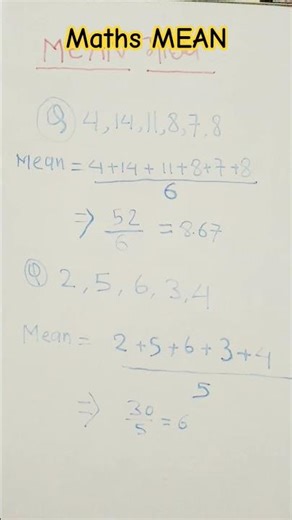 Maths MEAN
MEAN
Q 4, 14, 11, 8, 7, 8
Mean = 4+14+11+8+7+8
6
⇒ 52
6 = 8.67
Q 2, 5, 6, 3, 4
Mean = 2+5+6+3+4
5
⇒ 30
5 = 6